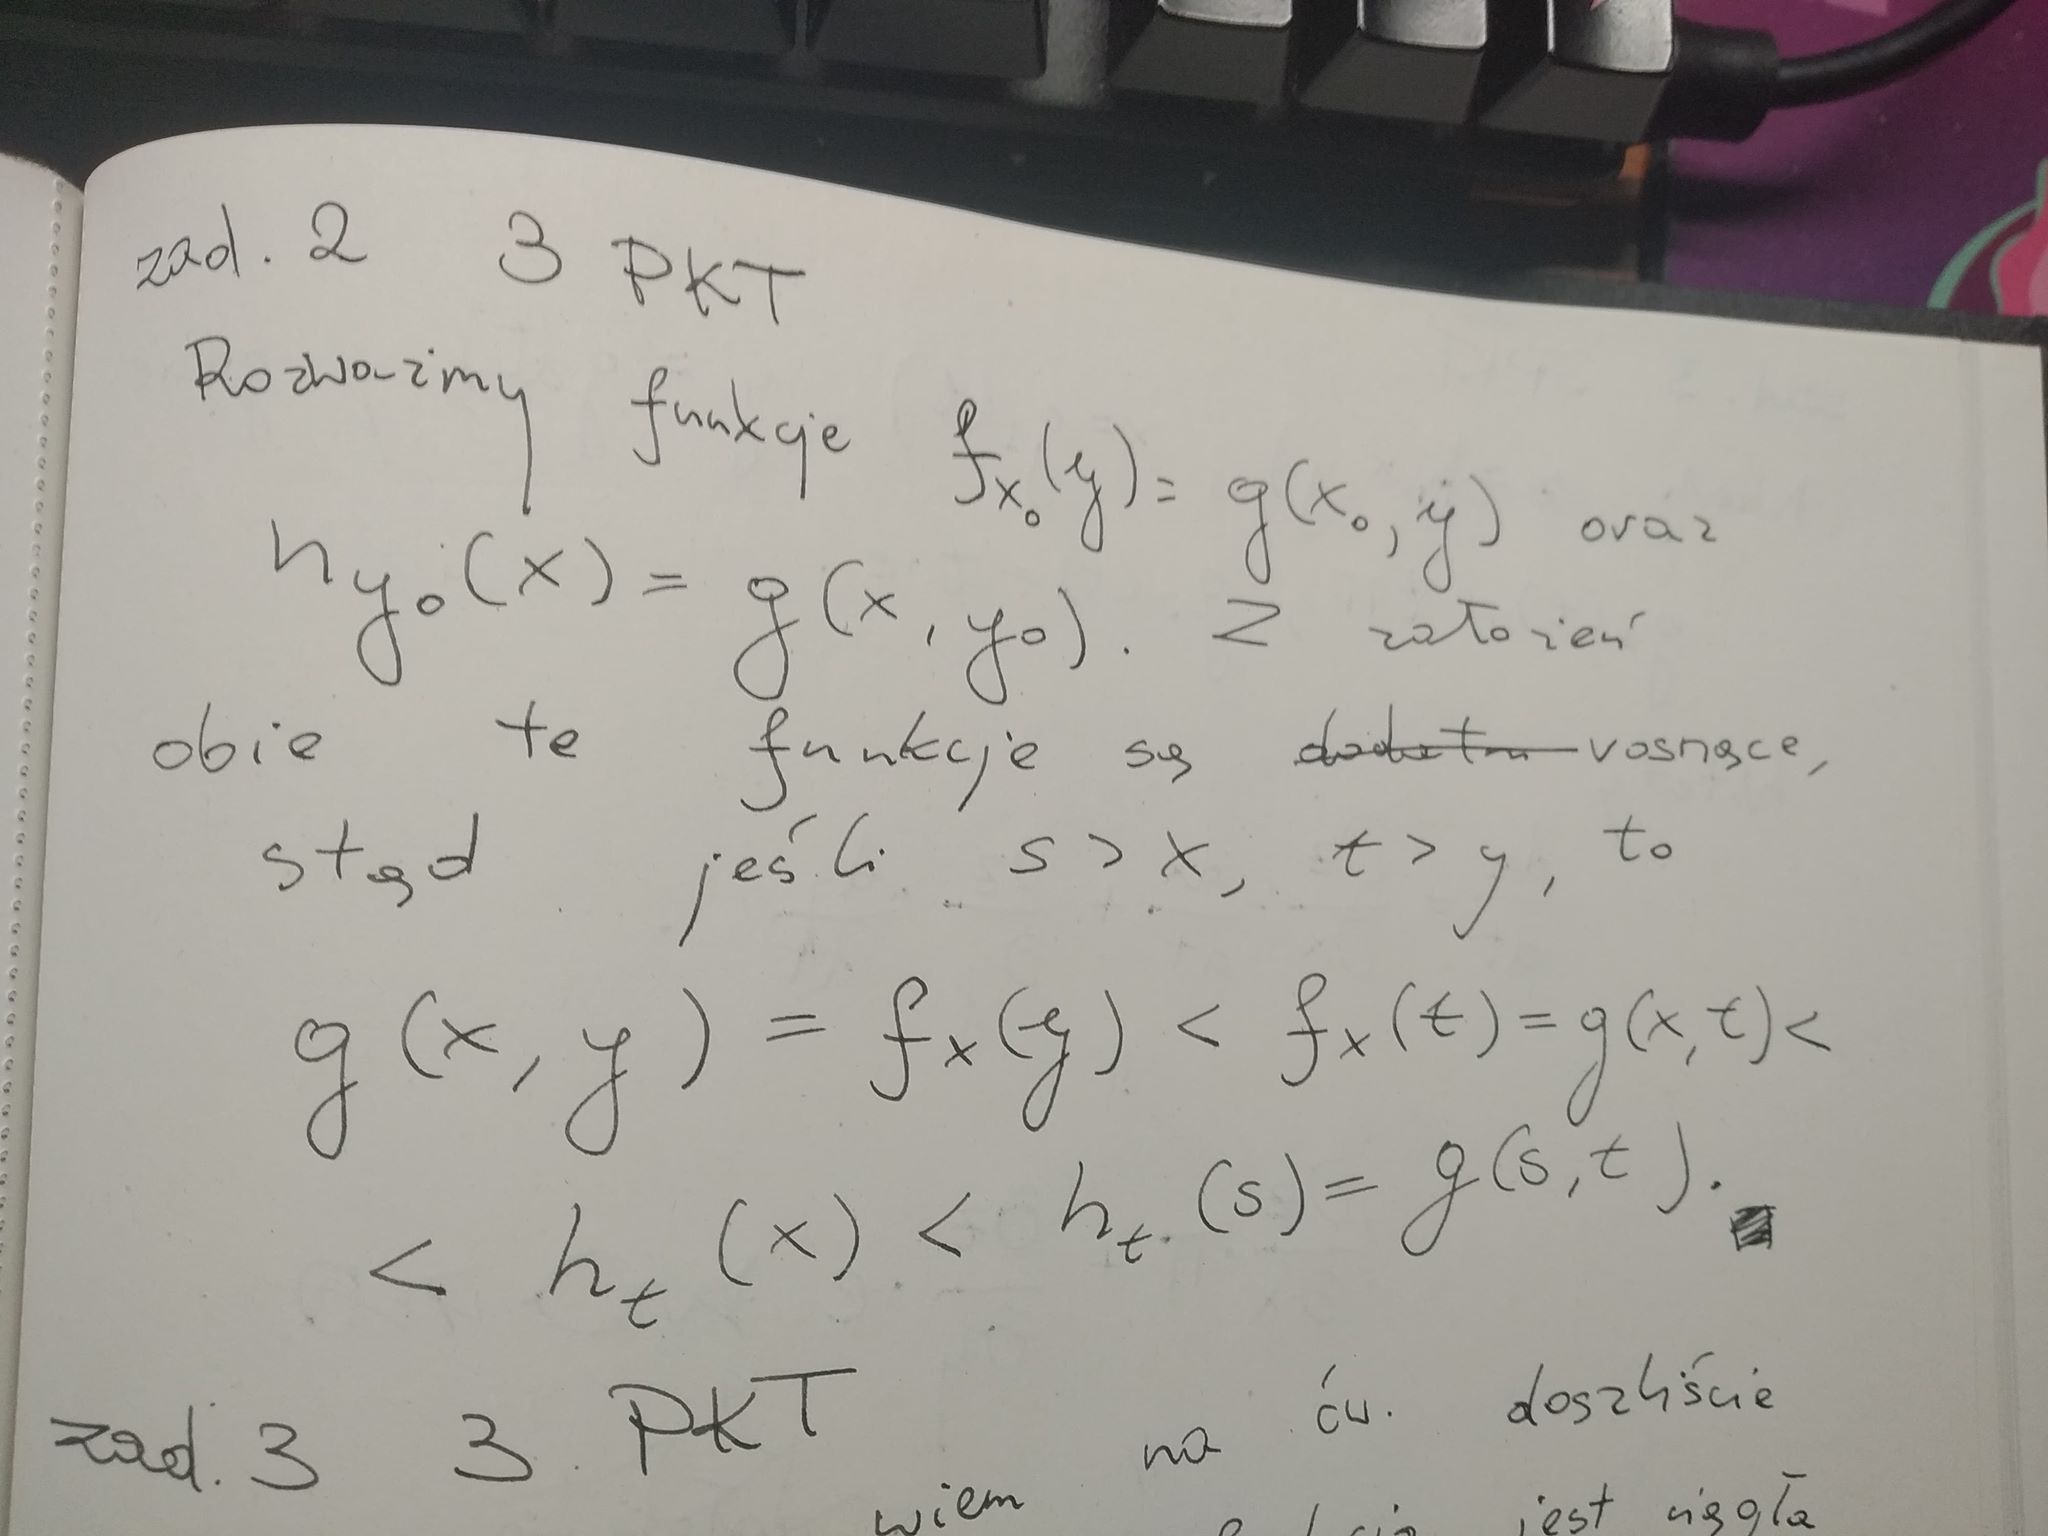 zad. 2 3 PKT
Rozważmy funkcje f_{x_0}(y) = g(x_0, y) oraz
h_{y_0}(x) = g(x, y_0). Z założeń
obie te funkcje są rosnące,
stąd jeśli s > x, t > y, to
g(x, y) = f_x(y) < f_x(t) = g(x, t) <
< h_t(x) < h_t(s) = g(s, t).
zad. 3 3 PKT na ćw. doszliście
wiem jest ciągła